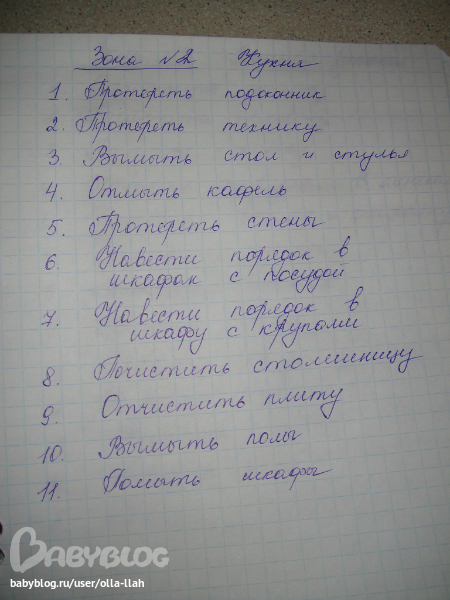 Зона №2 Кухня
1. Протереть подоконник
2. Протереть технику
3. Вымыть стол и стулья
4. Отмыть кафель
5. Протереть стены
6. Навести порядок в
шкафах с посудой
7. Навести порядок в
шкафу с крупами
8. Почистить столешницу
9. Отчистить плиту
10. Вымыть полы
11. Помыть шкафы
BABYBLOG
babyblog.ru/user/olla-llah